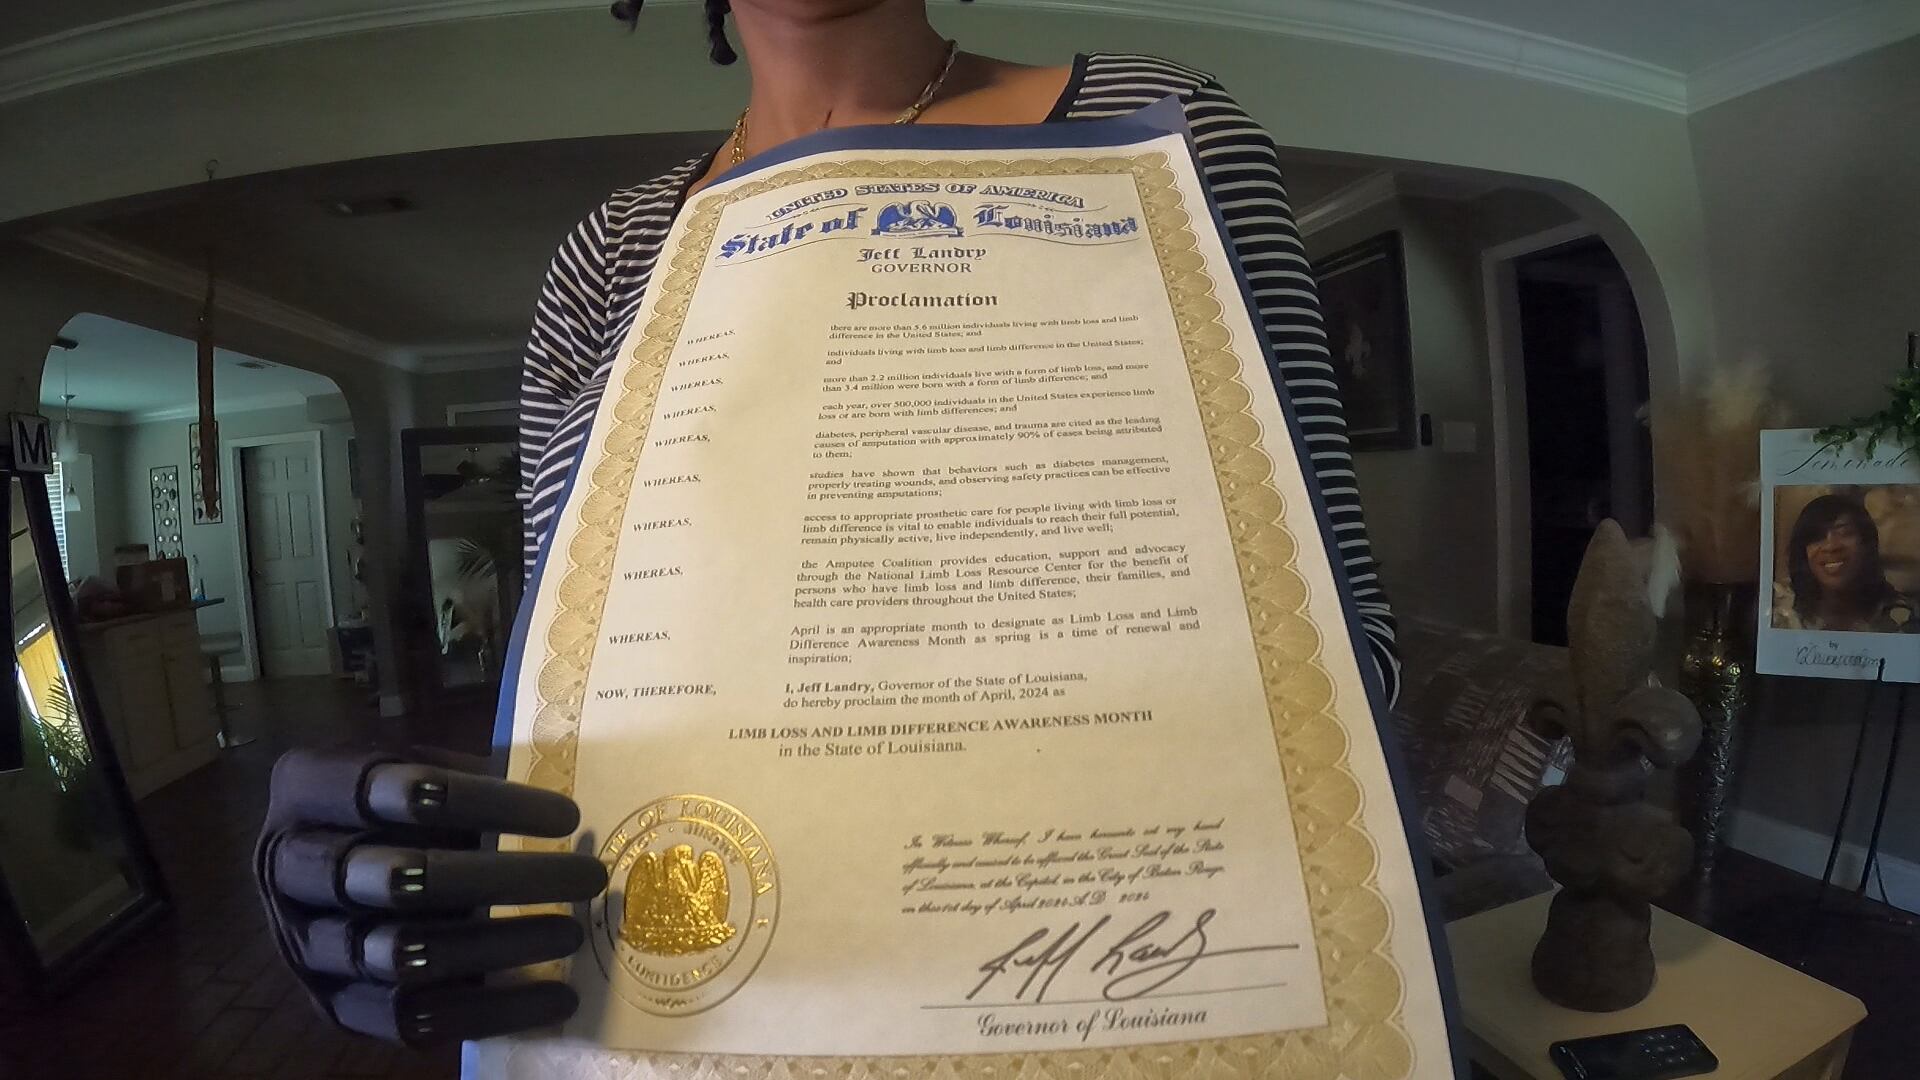 UNITED STATES OF AMERICA
State of Louisiana
Jeff Landry
GOVERNOR
Proclamation
WHEREAS, there are more than 5.6 million individuals living with limb loss and limb
difference in the United States; and
WHEREAS, individuals living with limb loss and limb difference in the United States;
and
WHEREAS, more than 2.2 million individuals live with a form of limb loss, and more
than 3.4 million were born with a form of limb difference; and
WHEREAS, each year, over 500,000 individuals in the United States experience limb
loss or are born with limb differences; and
WHEREAS, diabetes, peripheral vascular disease, and trauma are cited as the leading
causes of amputation with approximately 90% of cases being attributed
to them;
WHEREAS, studies have shown that behaviors such as diabetes management,
properly treating wounds, and observing safety practices can be effective
in preventing amputations;
WHEREAS, access to appropriate prosthetic care for people living with limb loss or
limb difference is vital to enable individuals to reach their full potential,
remain physically active, live independently, and live well;
WHEREAS, the Amputee Coalition provides education, support and advocacy
through the National Limb Loss Resource Center for the benefit of
persons who have limb loss and limb difference, their families, and
health care providers throughout the United States;
WHEREAS, April is an appropriate month to designate as Limb Loss and Limb
Difference Awareness Month as spring is a time of renewal and
inspiration;
NOW, THEREFORE, I, Jeff Landry, Governor of the State of Louisiana,
do hereby proclaim the month of April, 2024 as
LIMB LOSS AND LIMB DIFFERENCE AWARENESS MONTH
in the State of Louisiana.
TE OF LOUISIANA
UNION JUSTICE
CONFIDENCE
In Witness Whereof, I have hereunto set my hand
officially and caused to be affixed the Great Seal of the State
of Louisiana, at the Capitol, in the City of Baton Rouge,
on this 1st day of April 2024 A.D. 2024
Jeff Landry
Governor of Louisiana
M
Lemonade
by